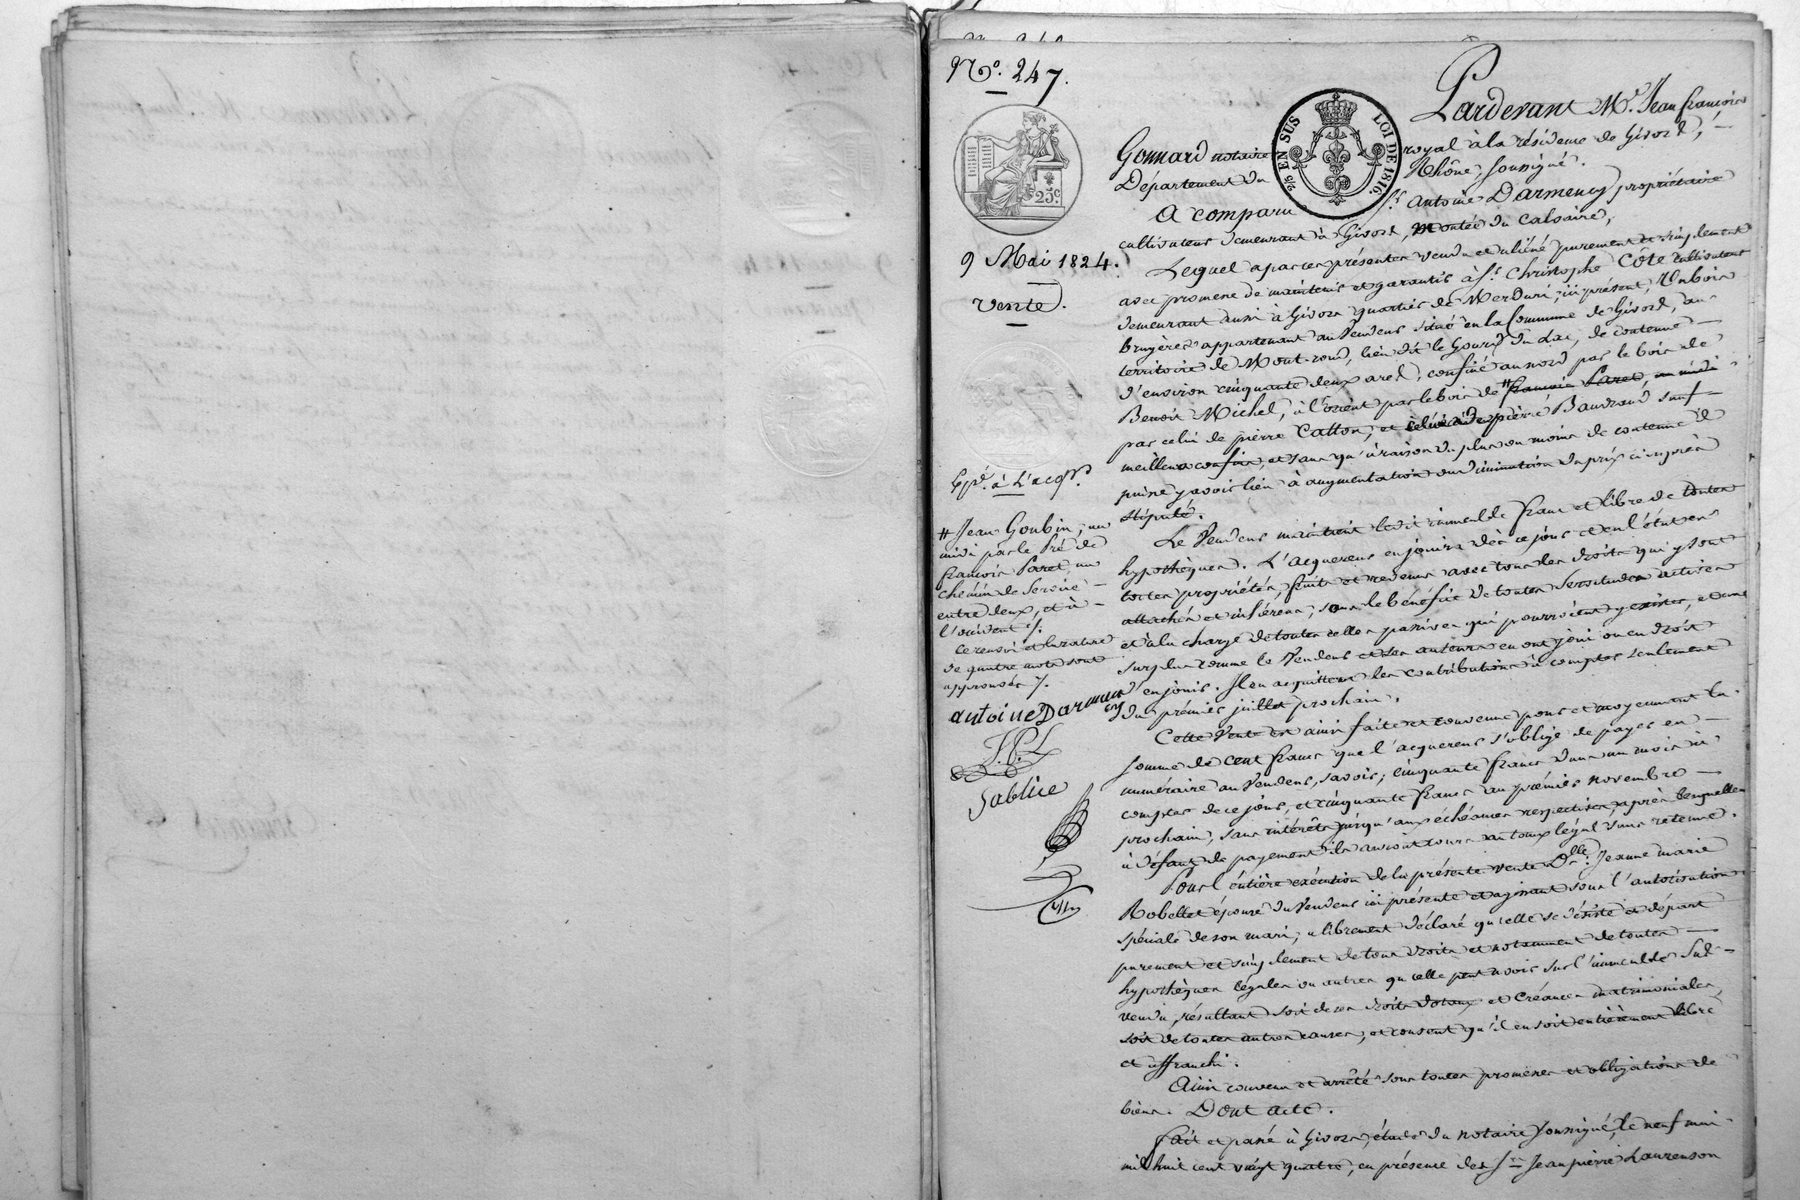 N.o 247.
25.c
9 Mai 1824.
vente.
Exp.é à L'acqr.
# Jean Goubin, au
midi par le Pré de
françois Paret, un
chemin de service
entre deux, et à
l'occident ./.
Ce renvoi et la rature
de quatre mots sont
approuvés ./.
antoine Darmency
J.P.L
Sablice
Pardevant M.e Jean françois
25c EN SUS LOI DE 1816.
Gonnard notaire royal à la résidence de Givors,
Département du Rhône, soussigné.
A comparu S.r Antoine Darmency propriétaire
cultivateur demeurant à Givors, montée du Calvaire,
Lequel a par ces présentes vendu et aliéné purement et simplement
avec promesse de maintenir et garantir à S.r Christophe Côte cultivateur
demeurant aussi à Givors quartier de Merduri, ici présent, Un bois
bruyères appartenant au Vendeur situé en la Commune de Givors, au
territoire de Mont-rond, lieu dit le Gourd du Lac, de contenue
d'environ cinquante deux ares, confiné au nord par le bois de
Benoit Michel, à l'orient par le bois de # françois Paret, au midi
par celui de pierre Catton, et celui de pierre Baudrand sauf
meilleurs confins, et sans qu'à raison du plus ou moins de contenue il
puisse y avoir lieu à augmentation ou diminution du prix ci-après
stipulé.
Le Vendeur maintient ledit immeuble franc et libre de toutes
hypothèques. L'acquéreur en jouira dès ce jour et en l'état en
toutes propriétés, fruits et revenus avec tous les droits qui y sont
attachés et inhérens, sous le bénéfice de toutes servitudes actives
et à la charge de toutes celles passives qui pourroient y exister, et au
surplus comme le Vendeur et ses auteurs en ont joui ou eu droit
en jouir. Il en acquittera les contributions à compter seulement
du premier juillet prochain.
Cette Vente est ainsi faite et convenue pour et moyennant la
somme de cent francs que l'acquéreur s'oblige de payer en
numéraire au Vendeur, savoir; cinquante francs dans un mois à
compter de ce jour, et cinquante francs au premier novembre
prochain, sans intérêts jusqu'aux échéances respectives, après lesquelles
à défaut de payement ils auront cours au taux légal sans retenue.
Pour l'entière exécution de la présente vente D.lle Jeanne marie
Robellet épouse du Vendeur ici présente et agissant sous l'autorisation
spéciale de son mari, a librement déclaré qu'elle se désiste et départ
purement et simplement de tous droits et notamment de toutes
hypothèques légales ou autres qu'elle peut avoir sur l'immeuble sus-
vendu, résultant soit de ses droits dotaux et créances matrimoniales,
soit de toutes autres causes, et consent qu'il en soit entièrement libre
et affranchi.
Ainsi convenu et arrêté sous toutes promesses et obligations de
biens. Dont acte.
Fait et passé à Givors, étude du notaire soussigné, le neuf mai
mil huit cent vingt quatre, en présence des S.rs Jean pierre Laurenson